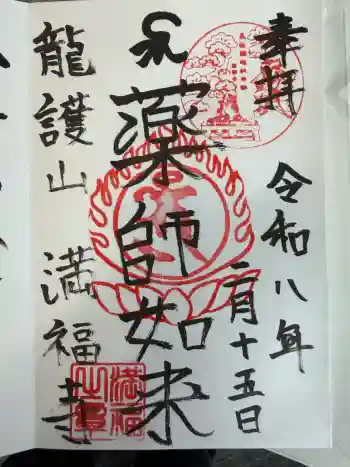 奉拝
令和八年
二月十五日
薬師如来
龍護山 満福寺
満福寺之印